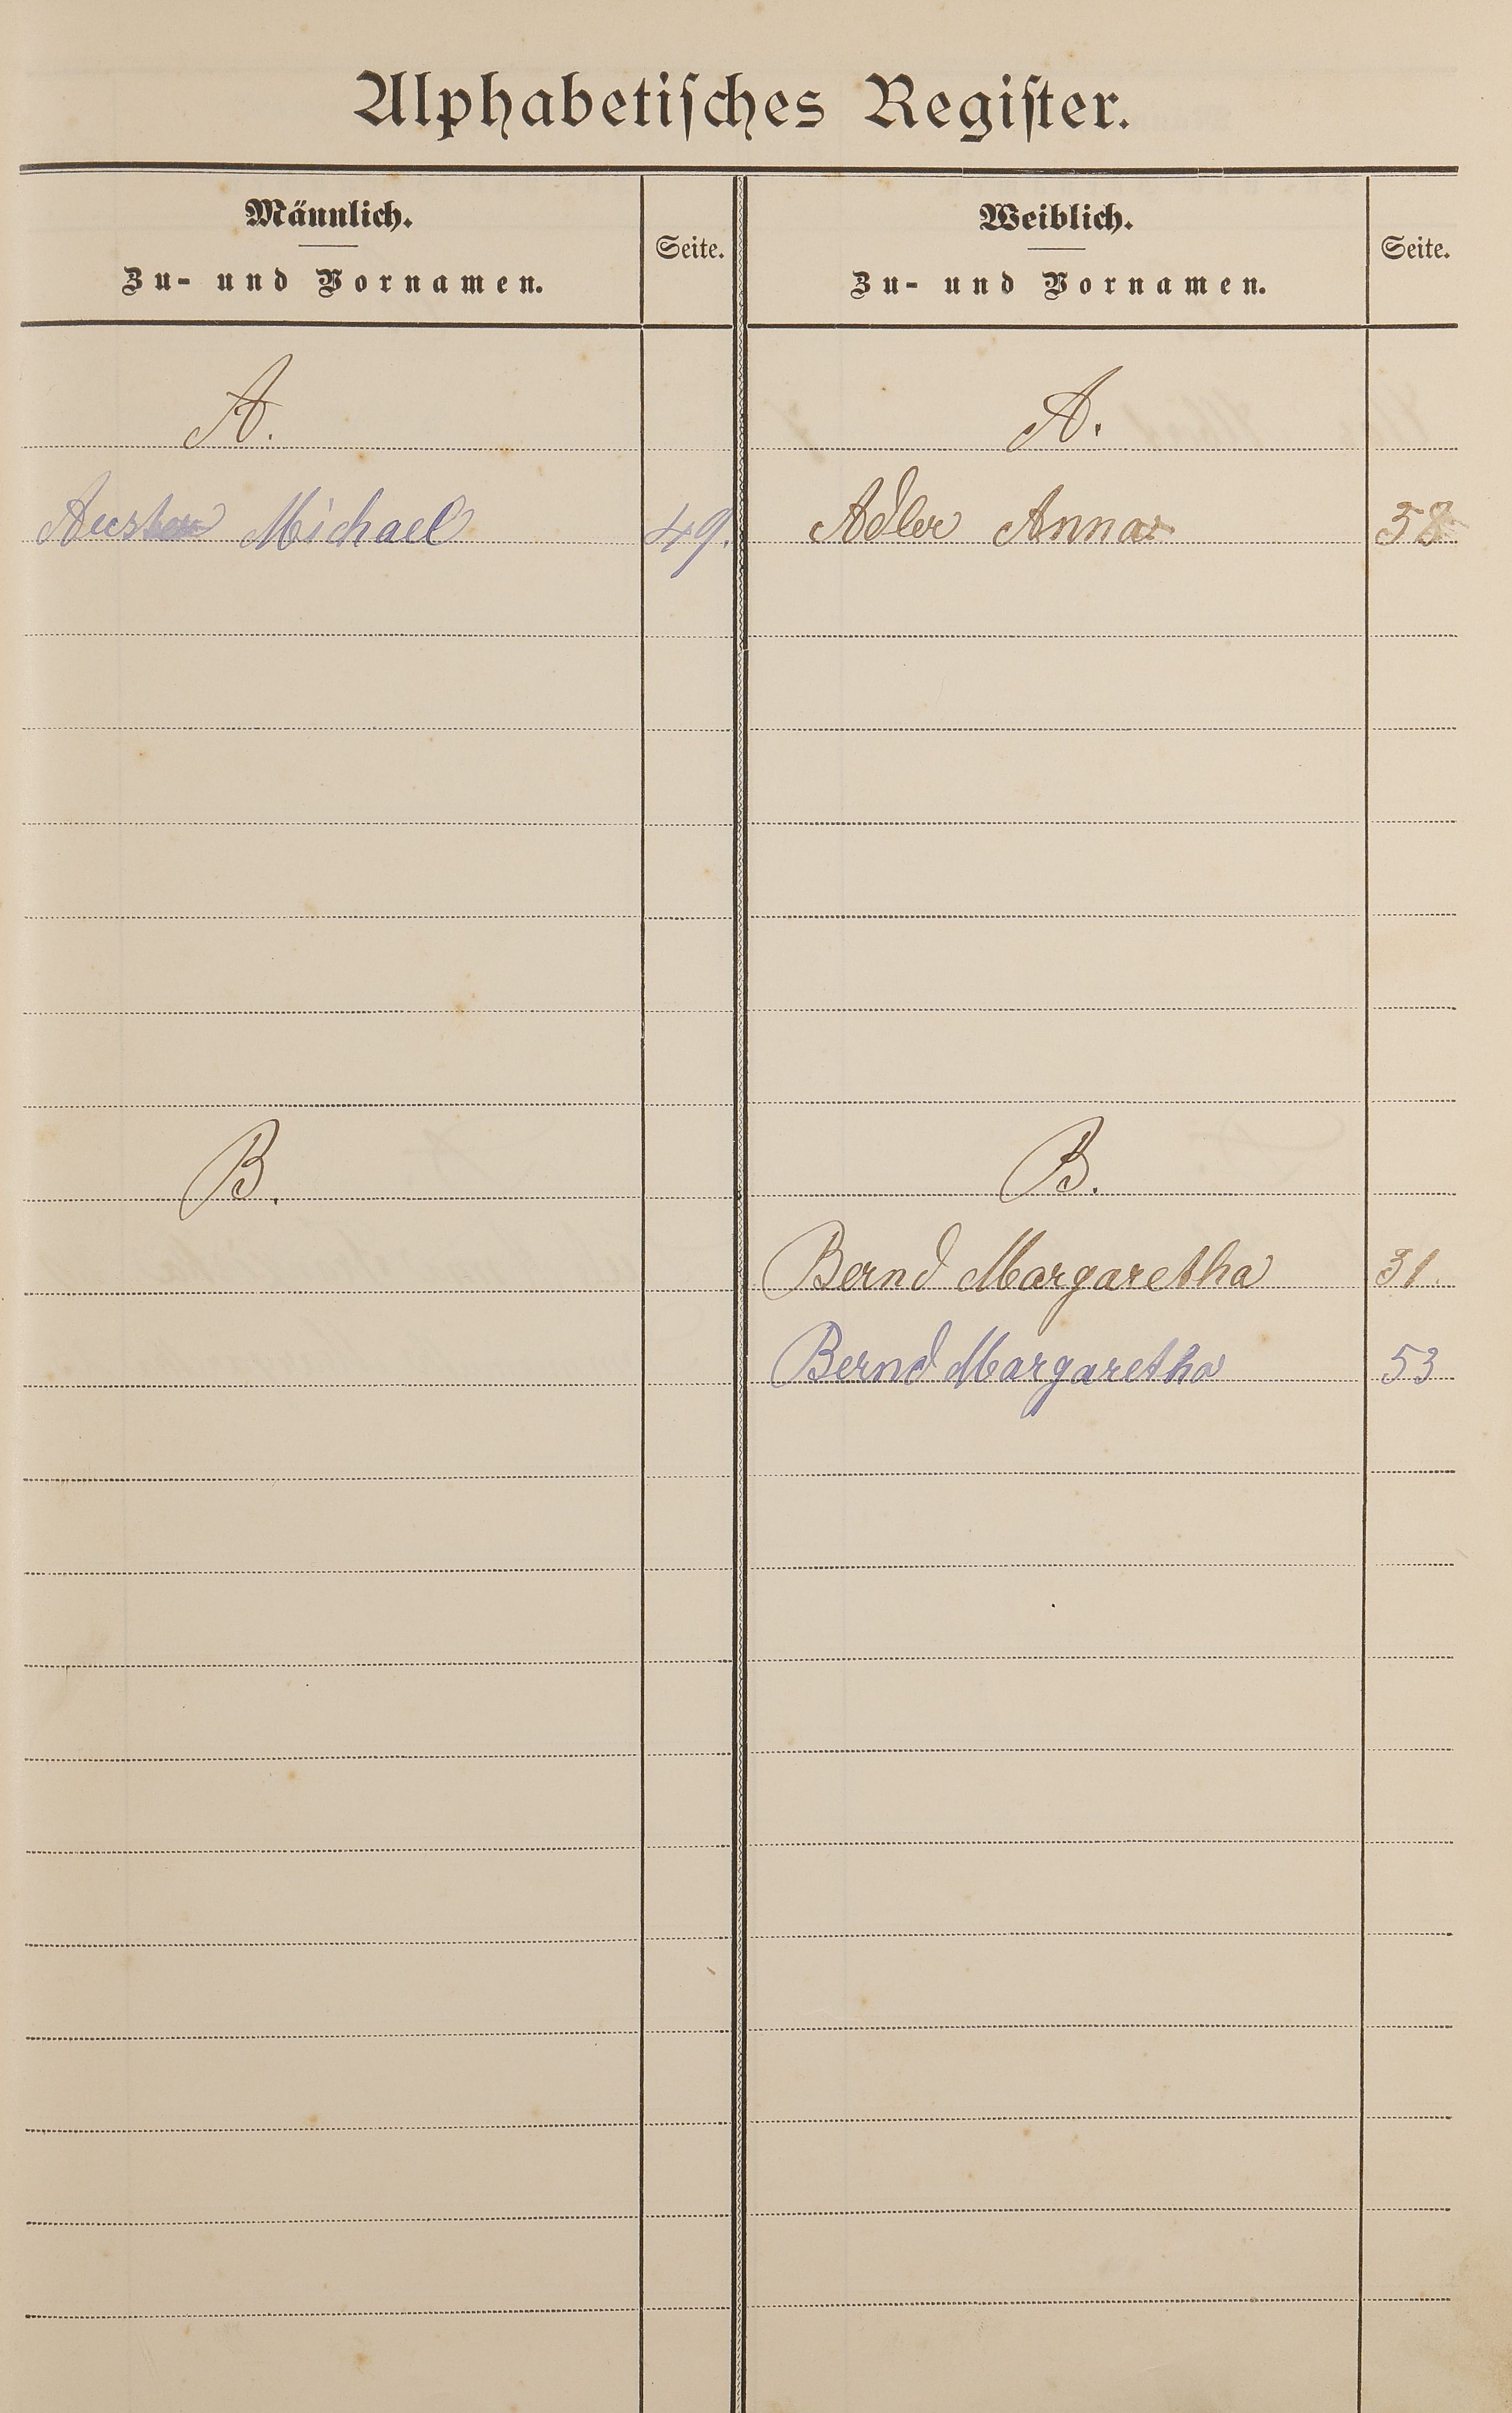 Alphabetisches Register.
Männlich.
Zu- und Vornamen.
Seite.
Weiblich.
Zu- und Vornamen.
Seite.
A.
A.
Michael 49.
Adler Anna 58
B.
B.
Bernd Margaretha 31.
Bernd Margaretha 53